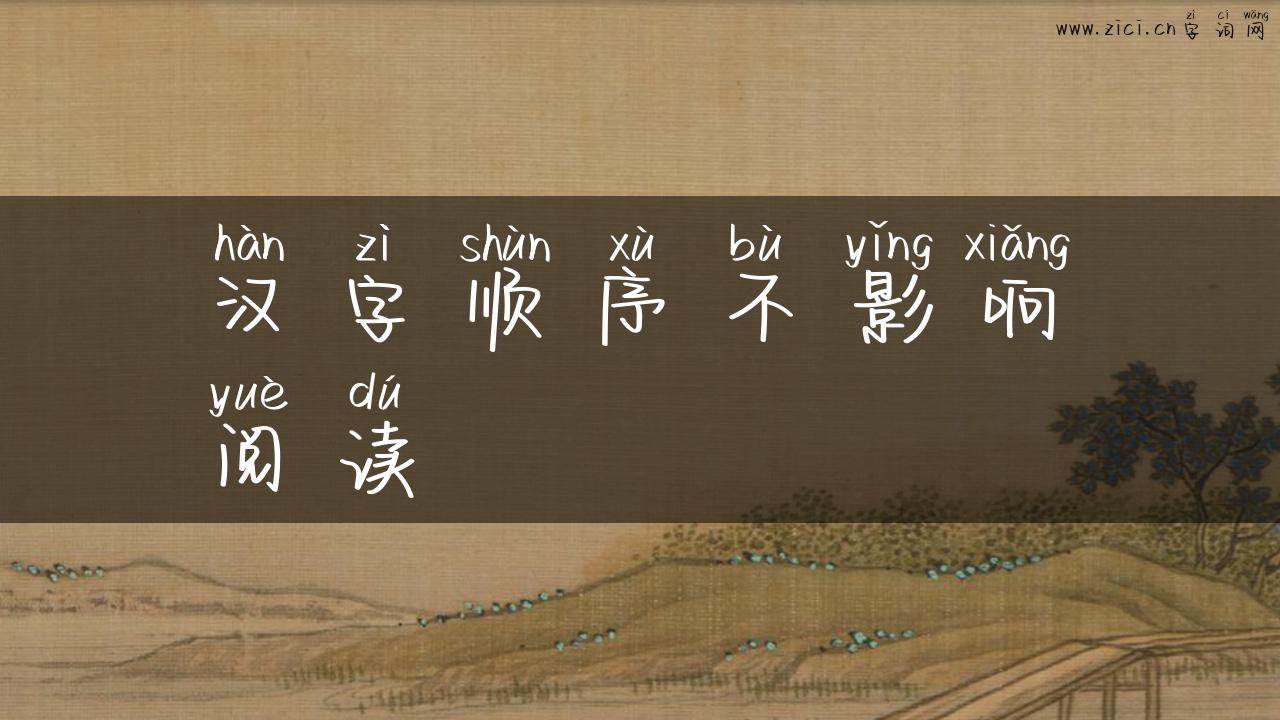 zì cí wǎng
www.zici.cn 字词网
hàn zì shùn xù bù yǐng xiǎng
汉字顺序不影响
yuè dú
阅读